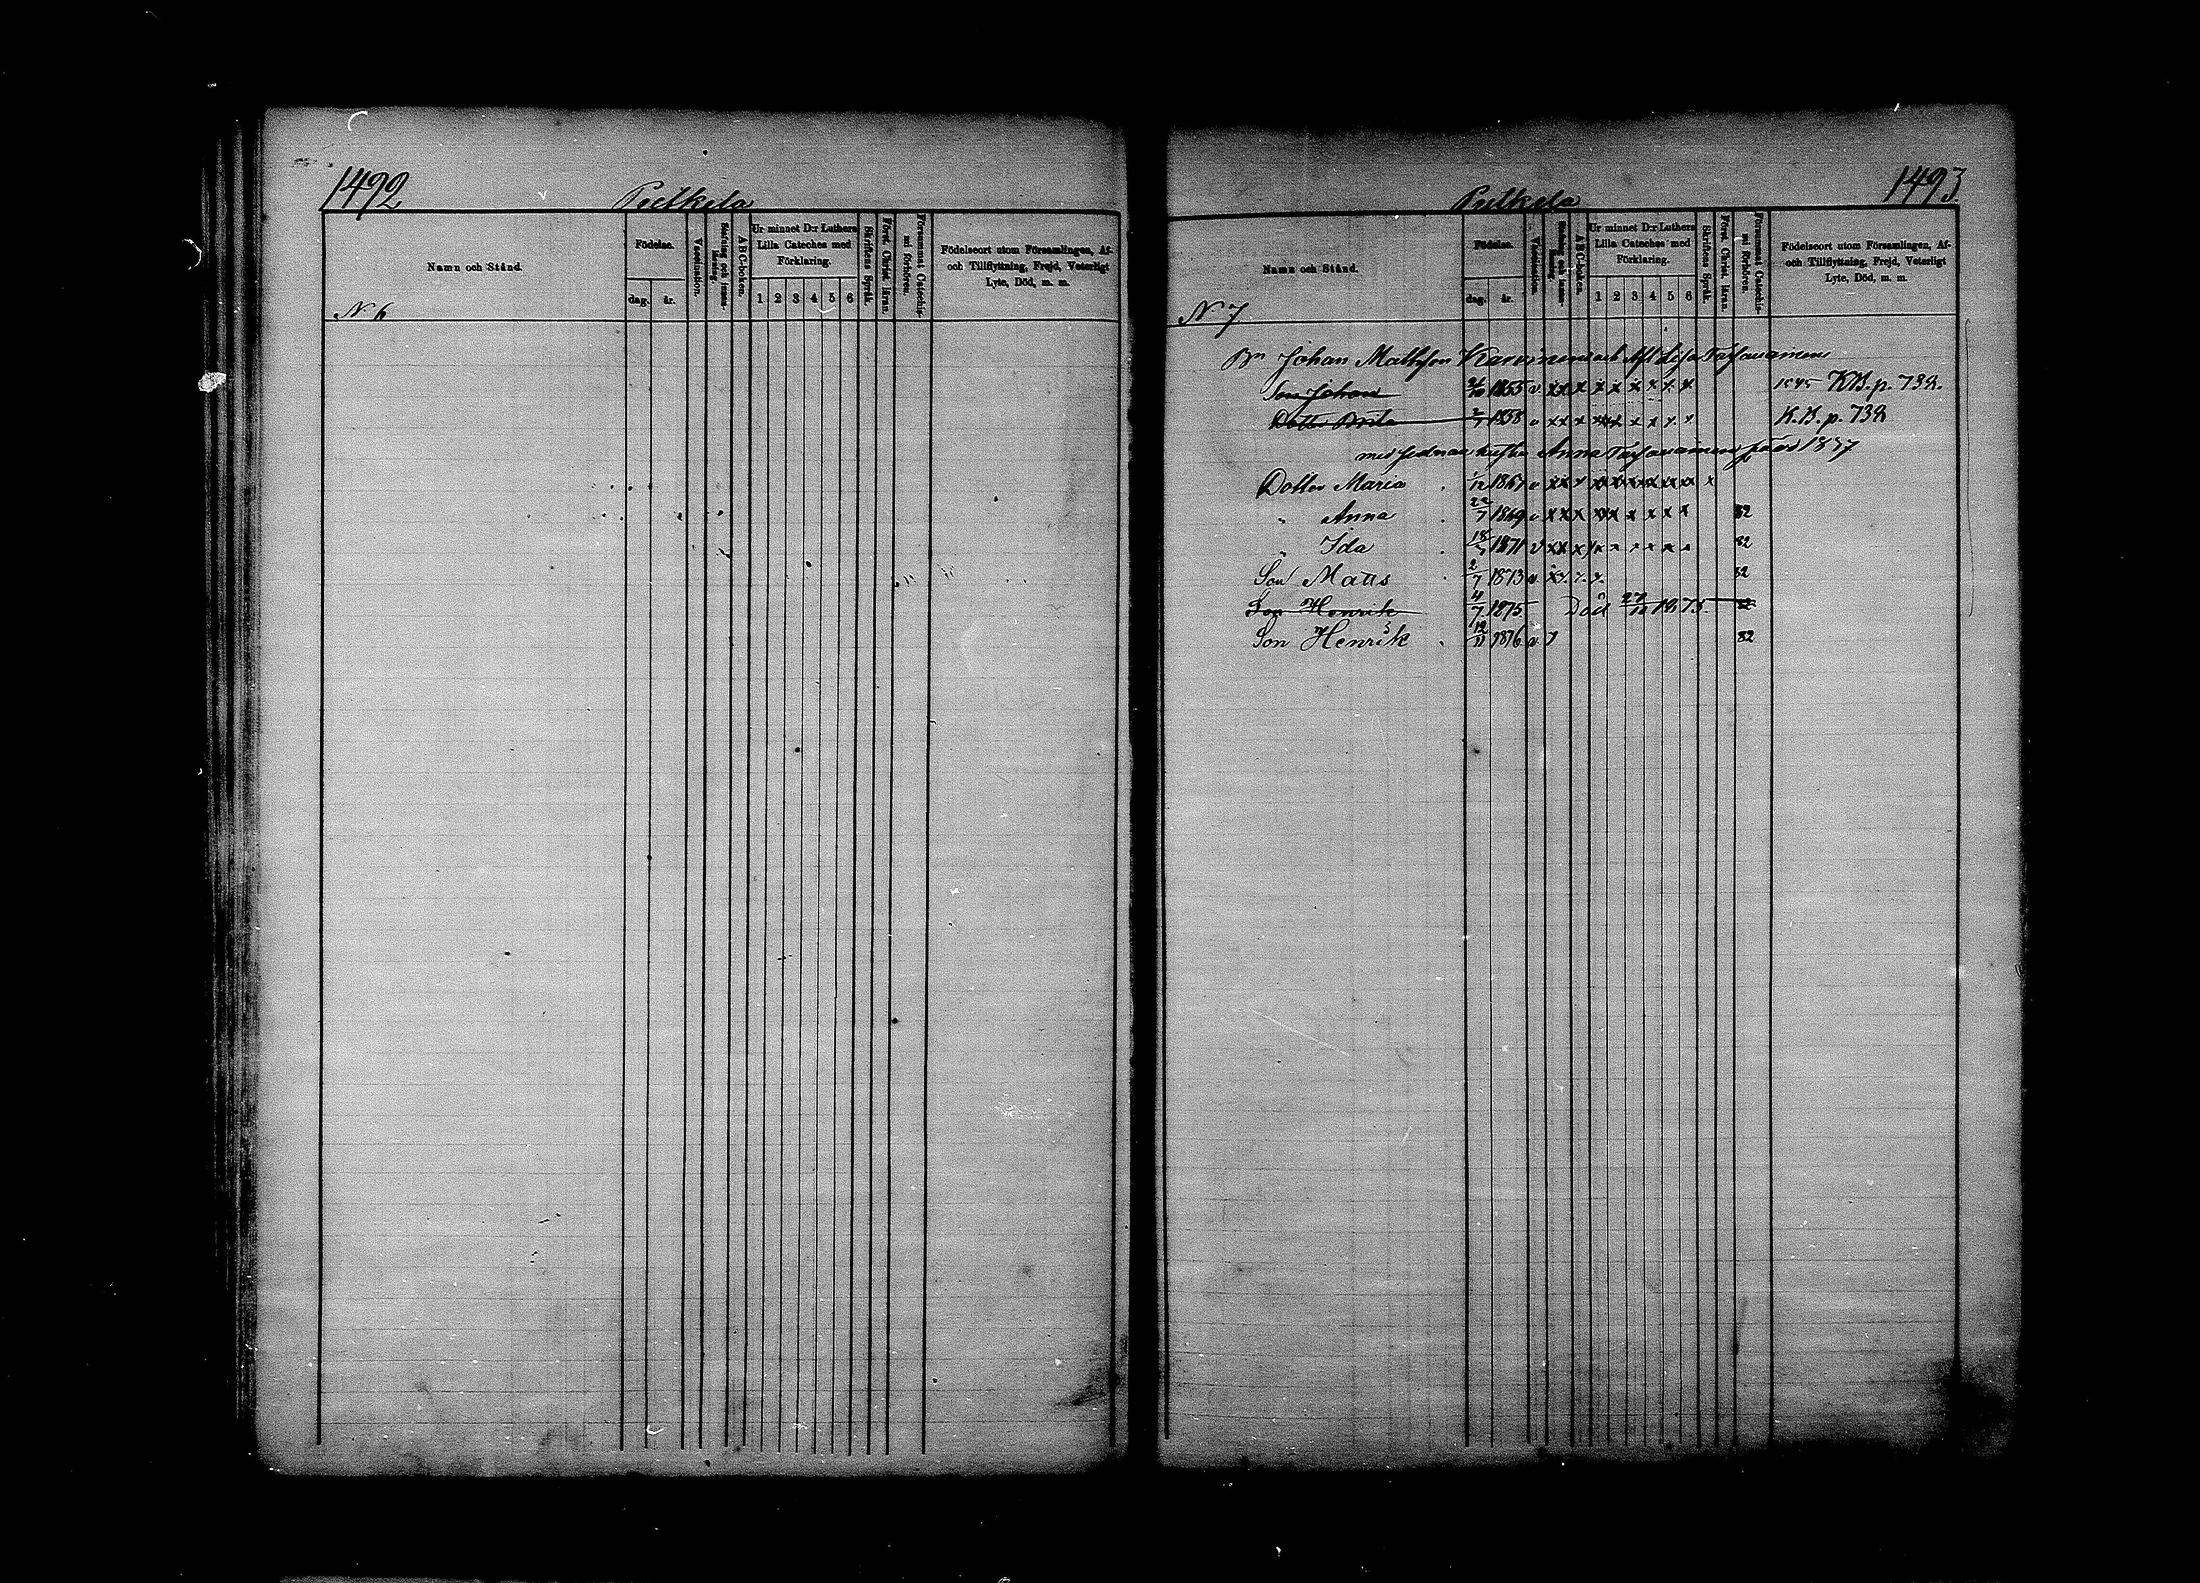 1492
Putkela
Namn och Stånd.
Födelse.
dag. år.
Vaccination.
Stafning och innanläsning.
A B C-boken.
Ur minnet D:r Luthers
Lilla Cateches med
Förklaring.
1 2 3 4 5 6
Skriftens Språk.
Först. Christ. läran.
Försummat Catechismi förhören.
Födelseort utom Församlingen, Af-
och Tillflyttning, Frejd, Veterligt
Lyte, Död, m. m.
N 6
1493
Putkela
Namn och Stånd.
Födelse.
dag. år.
Vaccination.
Stafning och innanläsning.
A B C-boken.
Ur minnet D:r Luthers
Lilla Cateches med
Förklaring.
1 2 3 4 5 6
Skriftens Språk.
Först. Christ. läran.
Försummat Catechismi förhören.
Födelseort utom Församlingen, Af-
och Tillflyttning, Frejd, Veterligt
Lyte, Död, m. m.
N 7
Bn Johan Mathsson Karvinens och Lisa
Son Johan 1855 v x x x x x x x x x KB. p. 732.
Dotter Brita 2/7 1858 v x x x x x x x x K.B. p. 732
med hustru Anna
Dotter Maria 1/12 1867 v x x x x x x x x x x
" Anna 22/7 1869 v x x x x x x x x x 82
" Ida 18/5 1871 v x x x x x x x x x 82
Son Matts 2/7 1873 v x x x x 82
Son Henrik 4/7 1875 Död 27/12 1875. 82
Son Henrik 12/11 1876 v 82